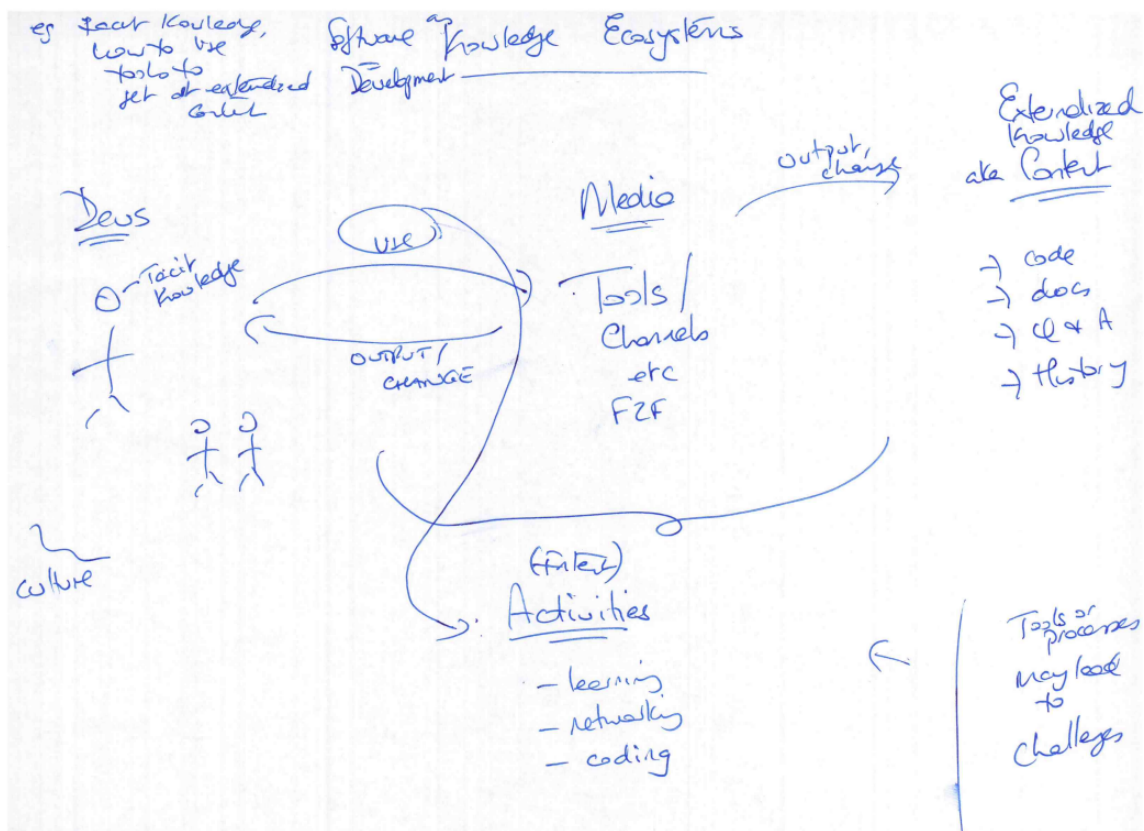 eg Tacit knowledge,
how to use
tools to
get at externalized
content
Software as Knowledge Ecosystems
Development
Externalized
Knowledge
aka Content
output,
change
Devs
Tacit
knowledge
USE
OUTPUT/
CHANGE
Media
Tools/
Channels
etc
F2F
→ code
→ docs
→ Q & A
→ History
culture
(Intent)
Activities
- learning
- networking
- coding
Tools or
processes
may lead
to
challenges